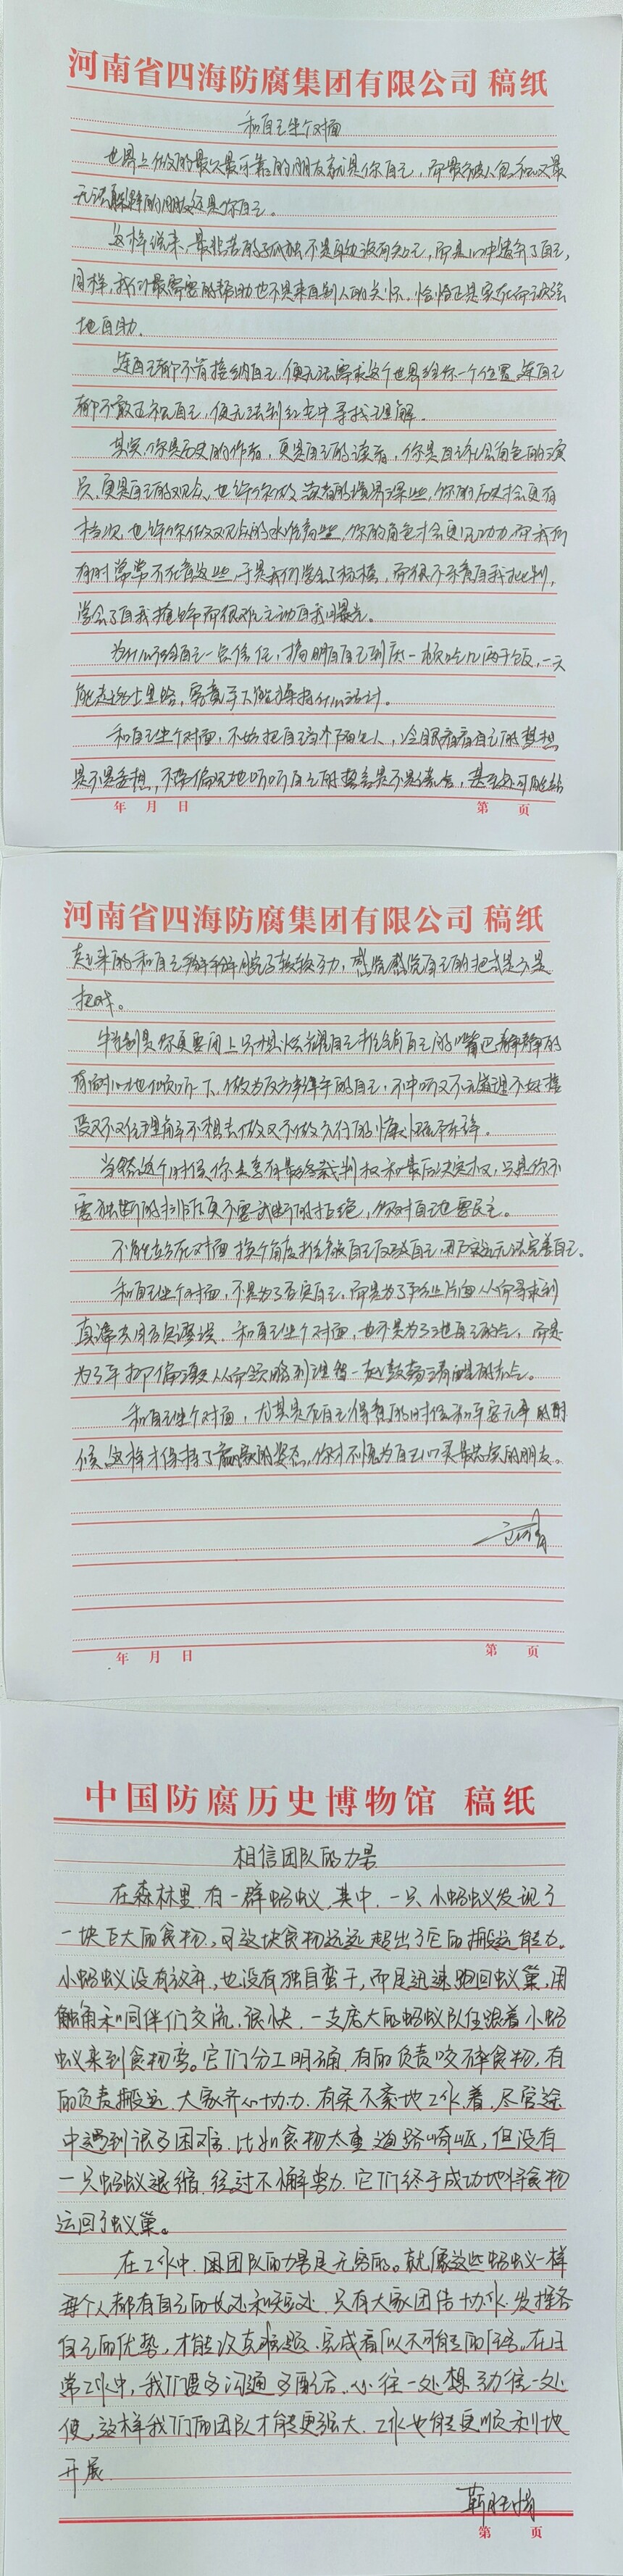 河南省四海防腐集团有限公司 稿纸
和自己坐个对面
世界上做的最久最可靠的朋友就是你自己，而最被人忽和又最
无法躲避的朋友还是你自己。
这样说来，最悲苦的孤独不是身边没有知己，而是心中遗弃了自己，
同样，我们最需要的帮助也不是来自别人的关怀，恰恰正是实在而顽强
地自助.
连自己都不肯接纳自己，便无法要求这个世界给你一个位置，连自己
都不敢正视自己，便无法到红尘中寻找理解.
其实，你是历史的作者，更是自己的读者，你是自己社会角色的演
员，更是自己的观众，也许你做读者的境界深些，你的历史才会更有
档次，也许你做观众的水准高些，你的角色才会更见功力，而我们
有时常常不在意这些，于是我们学会了标榜，而很不乐意自我批判，
学会了自我掩饰而很难主动自我曝光。
为什么不给自己一点信任，搞明白自己到底一顿吃几两干饭，一天
能走多少里路，需真本下能操持什么活计。
和自己坐个对面，不妨把自己当个陌生人，冷眼看看自己的梦想
是不是妄想，不带偏见地听听自己的誓言是不是谎言，甚至还可能站
年 月 日 第 页
河南省四海防腐集团有限公司 稿纸
起来的和自己掰掰腕子较较劲，感觉感觉自己的把式是不是
把戏。
特别是你更要闭上只想炫耀自己推销自己的嘴巴静静的
有耐心地倾听下，做为反方辩手的自己，不中听又不无道理不好接
受又不仅理解不想去做又不做不行的慷慨陈辞.
当然，这个时候，你是享有最终裁判权和最后决定权，只是你不
要独断的排斥更不要武断的拒绝，你对自己也要民主。
不能站在对面换个角度推敲自己反驳自己，那就无法完善自己。
和自己坐个对面，不是为了否定自己，而是为了弥补片面从而寻求到
真谛去用否定谬误. 和自己坐个对面，也不是为了泄自己的气，而是
为了平抑偏激从而领略到理智一起鼓荡清醒的志气。
和自己坐个对面，尤其是在自己得意的时候和平安无事的时
候，这样才保持了赢家的姿态，你才不愧为自己以来最忠实的朋友。
年 月 日 第 页
中国防腐历史博物馆 稿纸
相信团队的力量
在森林里，有一群蚂蚁，其中，一只小蚂蚁发现了
一块巨大的食物，可这块食物远远超出了它的搬运能力。
小蚂蚁没有放弃，也没有独自蛮干，而是迅速跑回蚁巢，用
触角和同伴们交流，很快，一支庞大的蚂蚁队伍跟着小蚂
蚁来到食物旁。它们分工明确，有的负责咬碎食物，有
的负责搬运，大家齐心协力，有条不紊地工作着，尽管途
中遇到很多困难，比如食物太重，道路崎岖，但没有
一只蚂蚁退缩，经过不懈努力，它们终于成功地将食物
运回了蚁巢。
在工作中，团队的力量是无穷的。就像这些蚂蚁一样
每个人都有自己的长处和短处，只有大家团结协作，发挥各
自己的优势，才能攻克难题，完成看似不可能的任务。在日
常工作中，我们要多沟通多配合，心往一处想，劲往一处
使，这样我们的团队才能更强大，工作也能更顺利地
开展.
靳胜倩
第 页